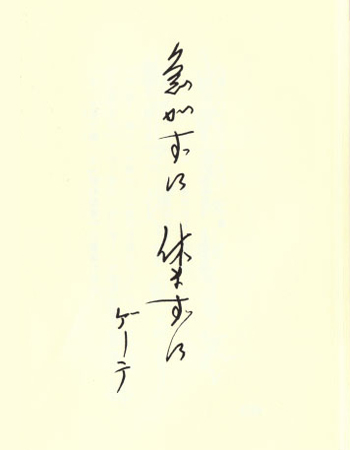 急がずに 休まずに
ゲーテ